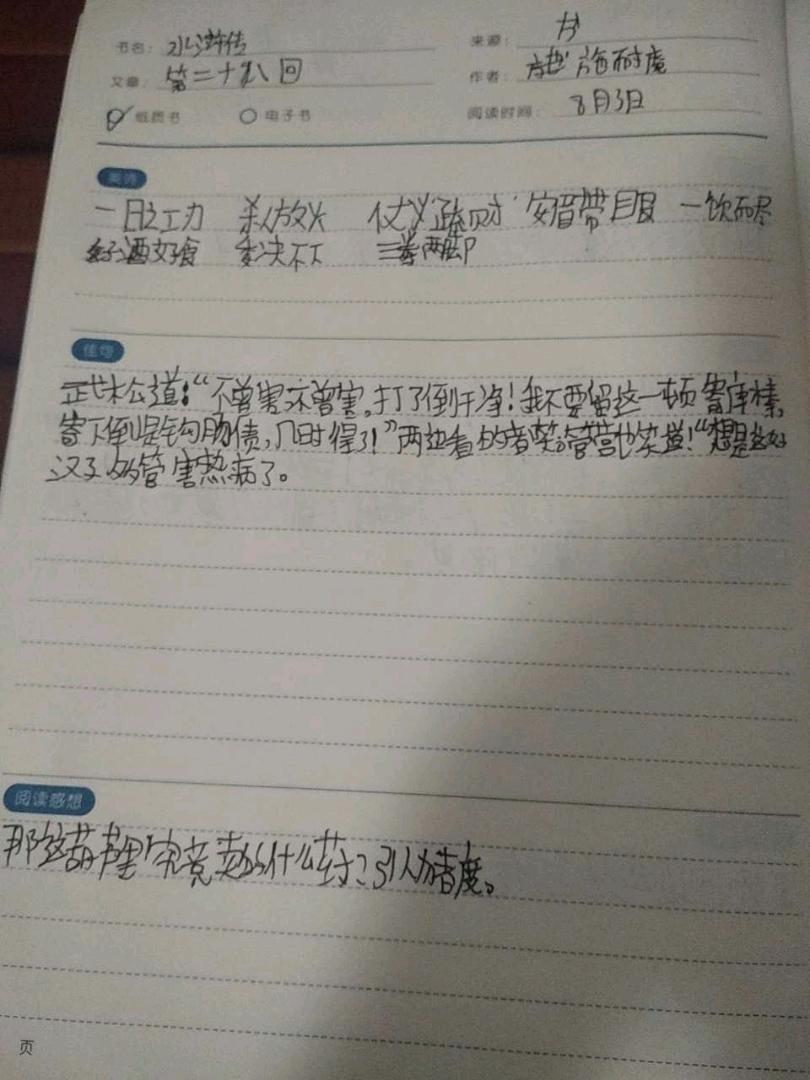 书名: 水浒传 来源: 书
文章: 第二十八回 作者: 施耐庵
纸质书 电子书 阅读时间: 8月3日
美词
一日之工力 杀人放火 仗义疏财 安眉带眼 一饮而尽
好酒好食 委决不下 三拳两脚
佳句
武松道:“不曾害不曾害,打了倒干净!我不要留这一顿寄库棒,
寄下倒是钩肠债,几时得了!”两边看的者笑,管营也笑道!“想是这好
汉子多管害热病了。
阅读感想
那葫芦里究竟卖的什么药?引人猜度。
页